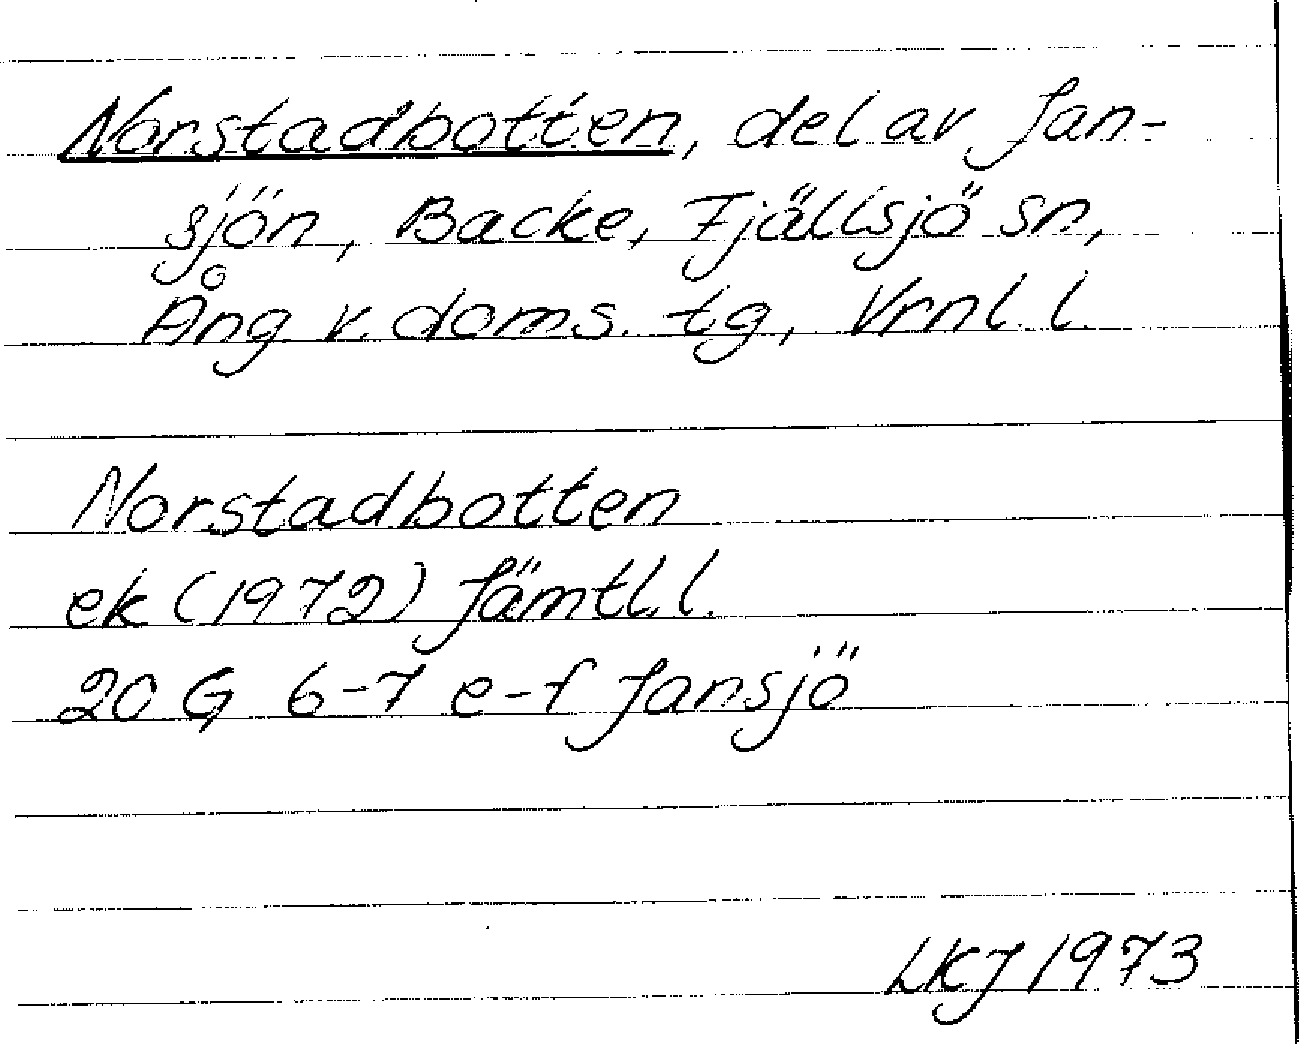 Norstadbotten, del av Jan-
sjön, Backe, Fjällsjö sn,
Ång. v. doms. tg, Vrnl. l.
Norstadbotten
ek (1972) Jämtl. l.
20 G 6-7 e-f Jansjö
LKJ 1973